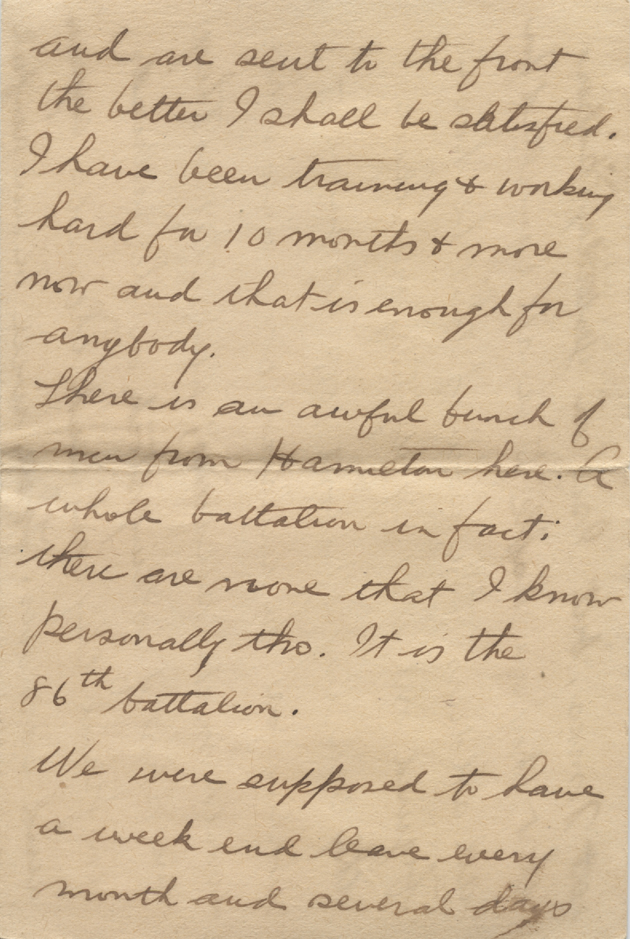 and are sent to the front
the better I shall be satisfied.
I have been training & working
hard for 10 months & more
now and that is enough for
anybody.
There is an awful bunch of
men from Hamilton here. A
whole battalion in fact;
there are none that I know
personally tho. It is the
86th battalion.
We were supposed to have
a week end leave every
month and several days